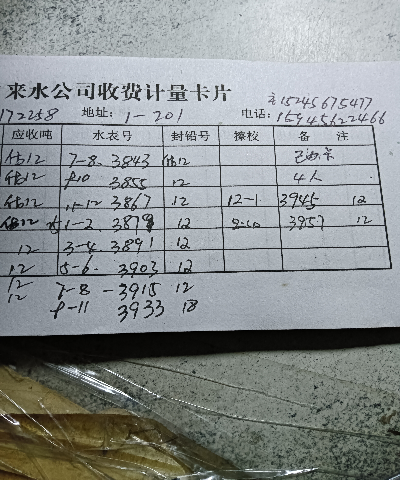 来水公司收费计量卡片
172258 地址: 1-201 电话: 15245675477
15945622466
应收吨 水衣号 封铅号 撩校 备 注
估12 7-8. 3843 估12
估12 9-10 3855 12 4人
估12 11-12 3867 12 12-1 3945 12
估12 1-2. 3879 12 9-10 3957 12
12 3-4. 3891 12
12 5-6. 3903 12
12 7-8 - 3915 12
12 9-11 3933 18